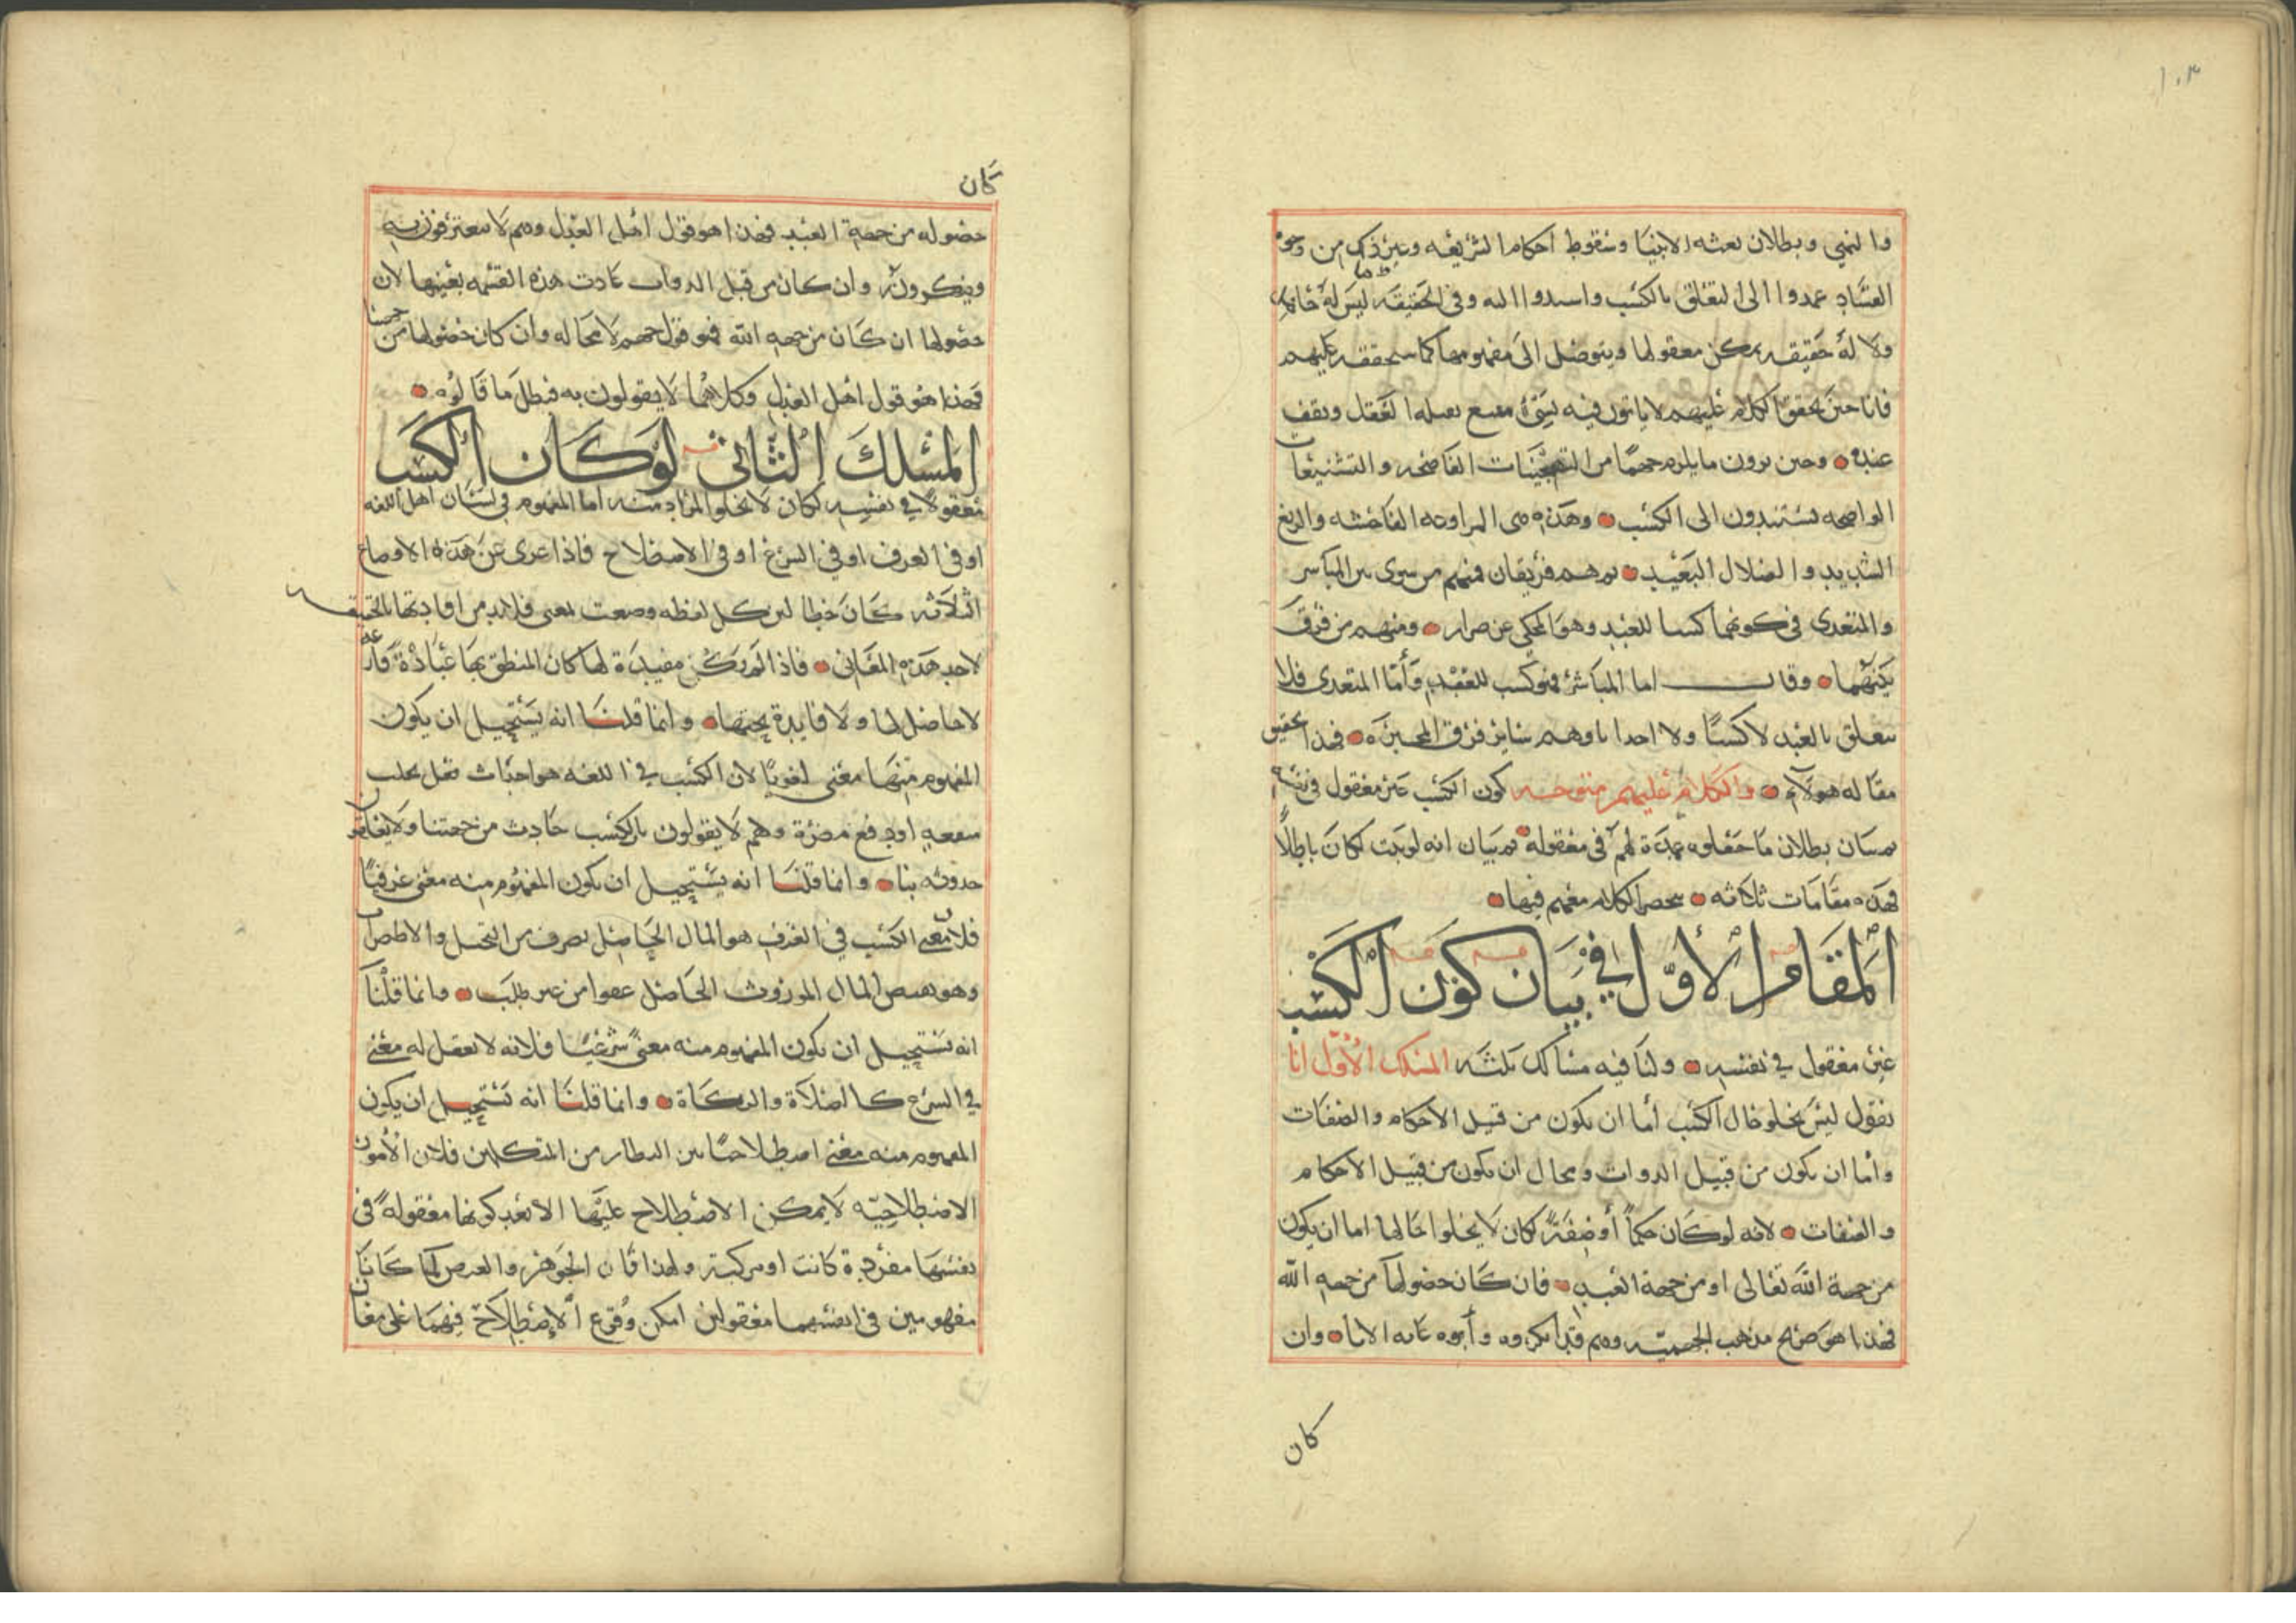 ١٠٣
والنهي وبطلان بعثه الانبيا وسقوط احكام الشريعه وغير ذلك من وجوه
الفساد عمدوا الى التعلق بالكسب واسندوا اليه وفي الحقيقه ليس له حاصل
ولا له حقيقه يمكن معقولها ويتوصل الى مفهومها كما سنحققه عليهم
فانا حين نحقق الكلام عليهم لا ياتون فيه بشيء مقنع يقبله العقل ويقف
عنده وحين يرون ما يلزم جهما من التهجينات الفاضحه والتشنيعات
الواضحه يستندون الى الكسب وهذه هي المراوغه الفاحشه والزيغ
الشديد والضلال البعيد ثم هم فريقان فمنهم من سوى بين المباشر
والمتعدي في كونهما كسبا للعبد وهو المحكي عن ضرار ومنهم من فرق
بينهما وقال اما المباشر فهو كسب للعبد وأما المتعدي فلا
يتعلق بالعبد لا كسبًا ولا احداثا وهم سائر فرق المجبرة فهذا تحقيق
مقاله هولاء والكلام عليهم يتوجه كون الكسب غير معقول في نفسه
ثم بيان بطلان ما جعلوه عمدة لهم في معقوله ثم بيان انه لو ثبت لكان باطلًا
فهذه مقامات ثلاثه نحصر الكلام معهم فيها
المقام الأول في بيان كون الكسب
غير معقول في نفسه ولنا فيه مسالك ثلثه المسلك الأول انا
نقول ليس يخلو حال الكسب أما ان يكون من قبيل الأحكام والصفات
وأما ان يكون من قبيل الدوات ومحال ان يكون من قبيل الاحكام
والصفات لانه لو كان حكماً أو صفةً لكان لا يخلوا حالها اما ان يكون
من جهة الله تعالى او من جهة العبد فان كان حصولها من جهه الله
فهذا هو صريح مذهب الجهميه وهم قد انكروه وأبوه غايه الابا وان
كان
كان
حصوله من جهة العبد فهذا هو قول اهل العدل وهم لا يعترفون به
وينكرونه وان كان من قبل الدوات عادت هذه القسمه بعينها لان
حصولها ان كان من جهه الله فهو قول جهم لا محاله وان كان حصولها من جهتنا
فهذا هو قول اهل العدل وكلاهما لا يقولون به فبطل ما قالوه
المسلك الثاني لو كان الكسب
معقولًا في نفسه لكان لا يخلو المراد منه اما المفهوم في لسان اهل اللغه
او في العرف او في الشرع او في الاصطلاح فاذا عرى عن هذه الاوضاع
الثلاثه كان خطا لان كل لفظه وضعت لمعنى فلا بد من افادتها بالحقيقه
لاحد هذه المعاني فاذا لم يكن مفيدة لها كان المنطق بها عبارة فارغه
لا حاصل لها ولا فايدة تحتها وانما قلنا انه يستحيل ان يكون
المفهوم منها معنى لغويًا لان الكسب في اللغه هو احداث فعل يجلب
منفعه او دفع مضرة وهم لا يقولون بان الكسب حادث من جهتنا ولا يتعلق
حدوثه بنا وانما قلنا انه يستحيل ان يكون المفهوم منه معنى عرفيًا
فلان معنى الكسب في العرف هو المال الحاصل بصرف من التحيل والاضطراب
وهو نقيض المال الموروث الحاصل عفوا من غير طلب وانما قلنا
انه يستحيل ان يكون المفهوم منه معنىً شرعيًا فلانه لا يعقل له معنى
في الشرع كالصلاة والزكاة وانما قلنا انه يستحيل ان يكون
المفهوم منه معنى اصطلاحيًا بين النظار من المتكلمين فلان الأمور
الاصطلاحيه لا يمكن الاصطلاح عليها الا بعد كونها معقولةً في
نفسها مفردة كانت او مركبة ولهذا فان الجوهر والعرض لما كانا
مفهومين في انفسهما معقولين امكن وقوع الإصطلاح فيهما على معان